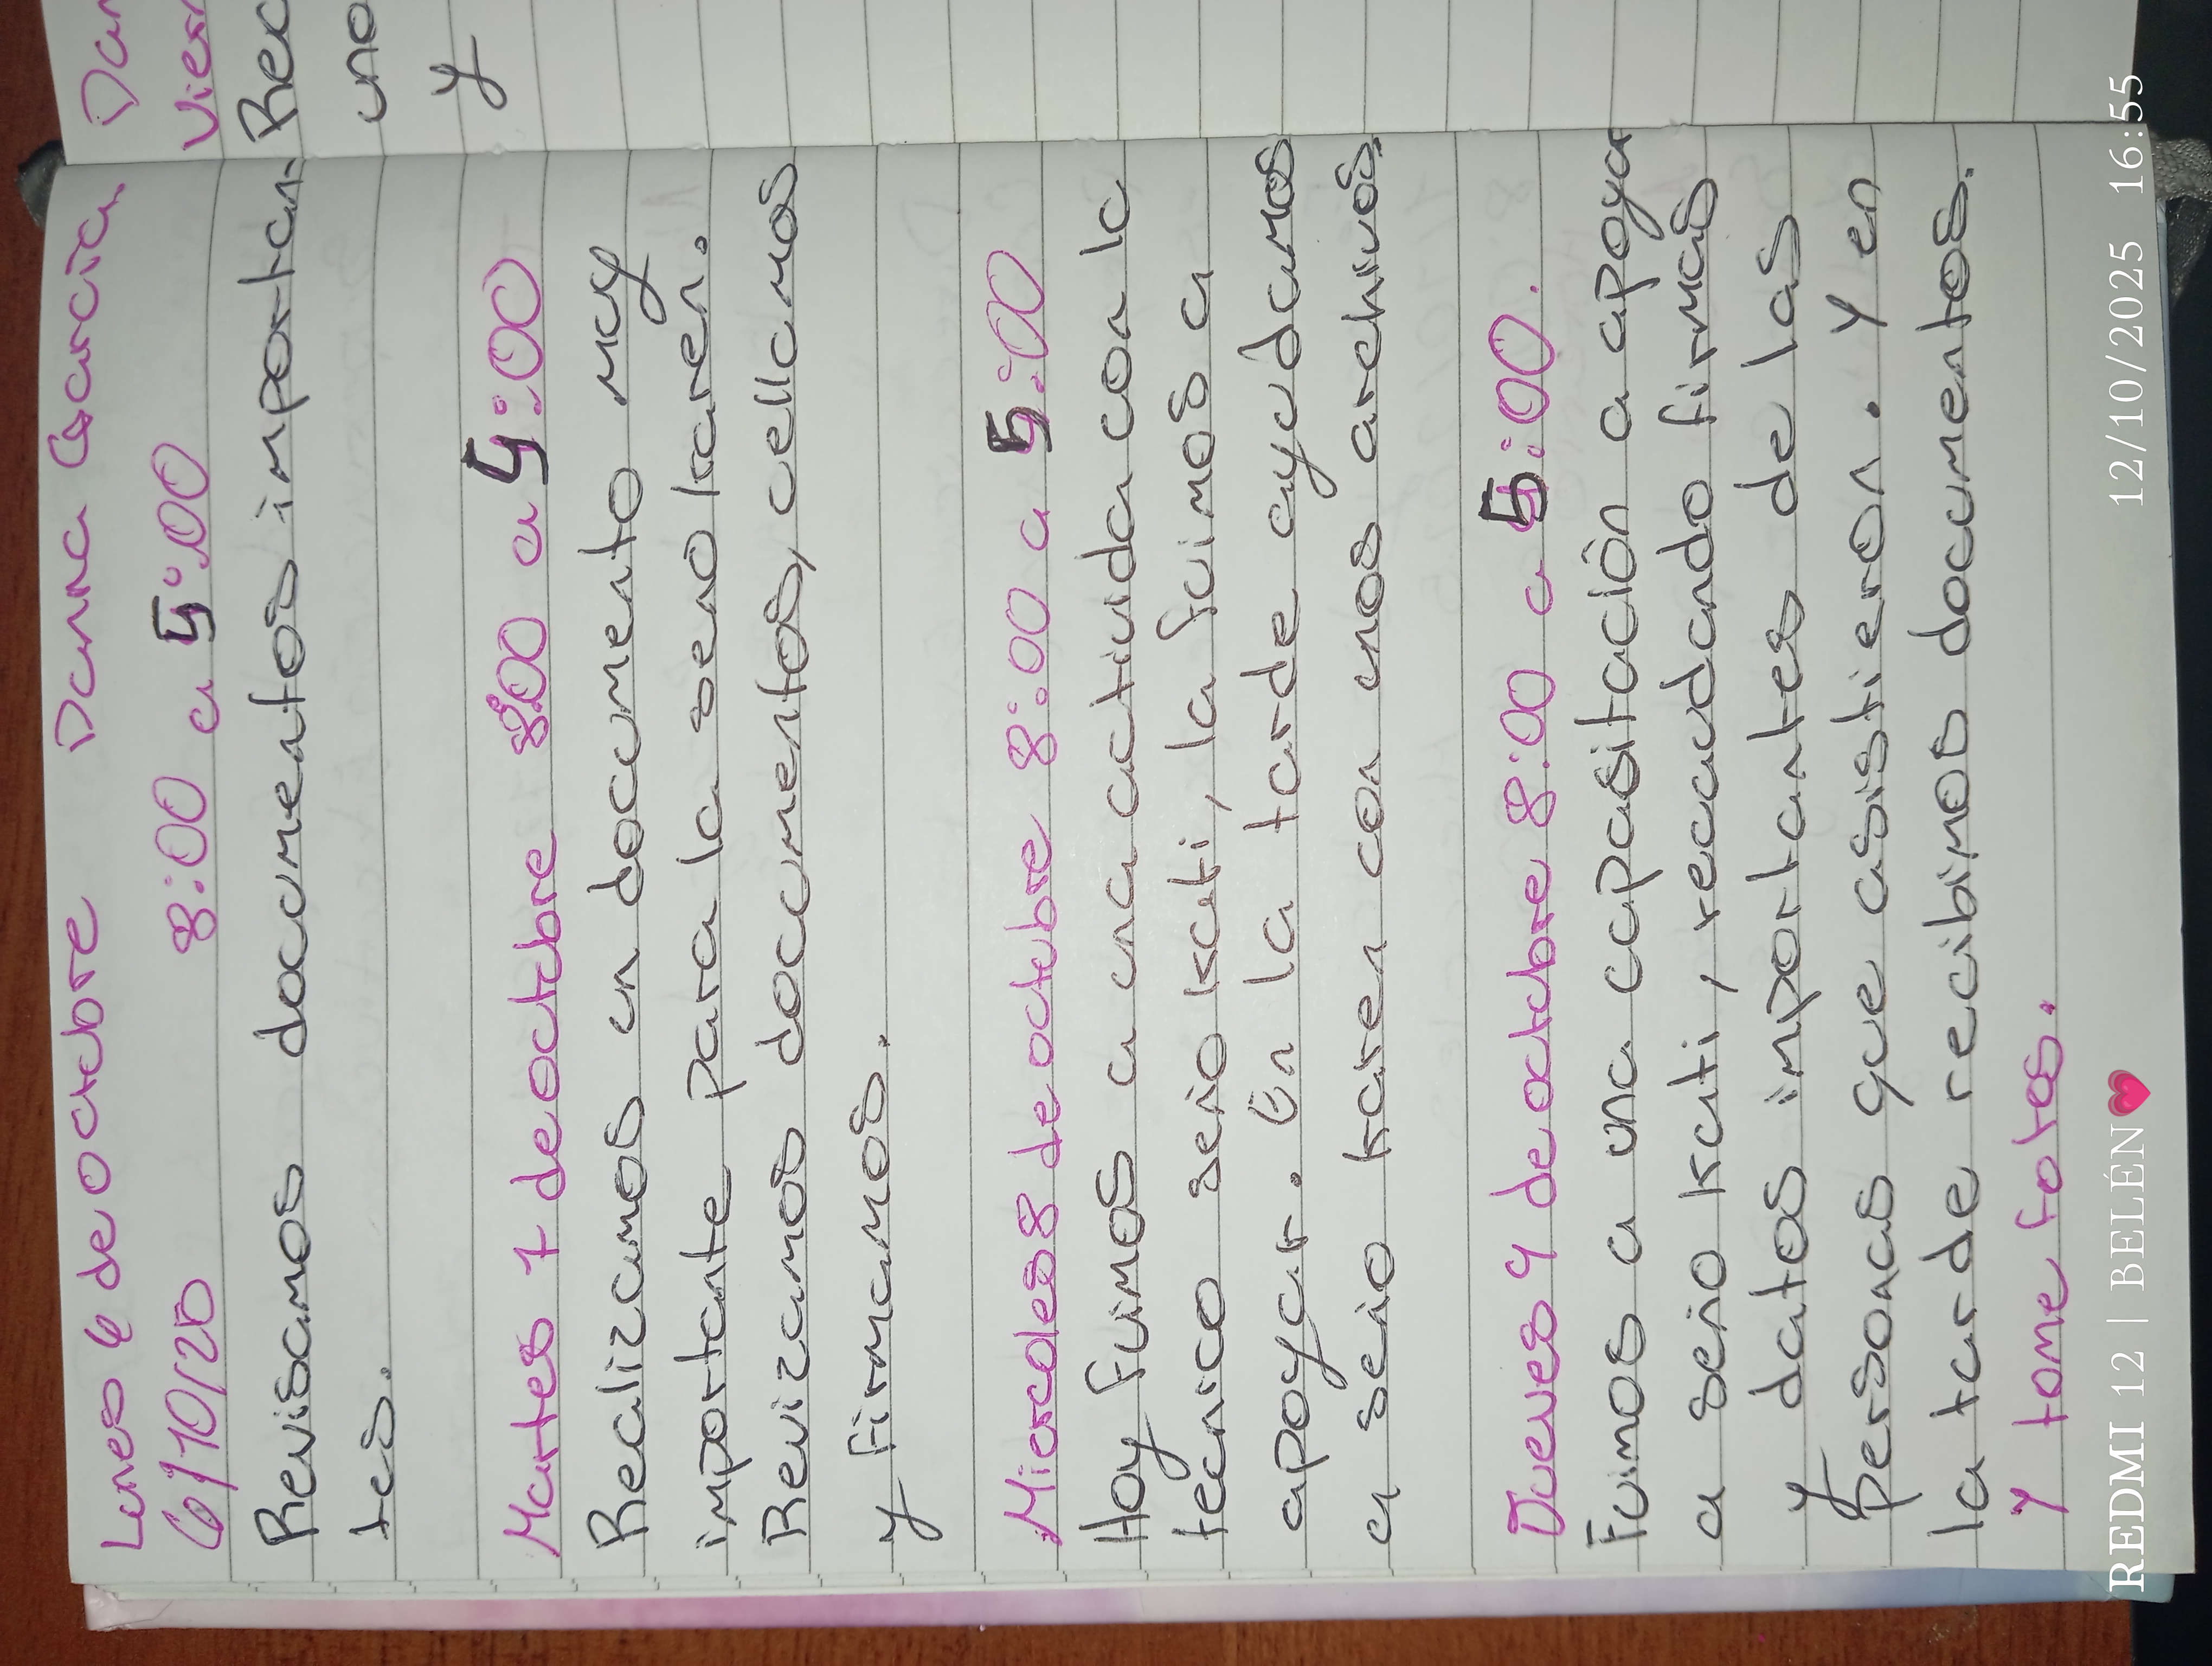 Lunes 6 de octubre Danna Garcia.
6/10/25 8:00 a 5:00
Revisamos documentos importan-
tes.
Martes 7 de octubre 8:00 a 5:00
Realizamos un documento muy
importante para la seño karen.
Revizamos documentos, cellamos
y firmamos.
Miercoles 8 de octubre 8:00 a 5:00
Hoy fuimos a una actiuida con la
tecnico seño kati, la fuimos a
apoyar. En la tarde ayudamos
a seño karen con unos archivos.
Jueves 9 de octubre 8:00 a 5:00.
Fuimos a una capasitación a apoya
a seño kati, recaudando firmas
y datos importantes de las
personas que asistieron. Y en
la tarde recibimos documentos.
Y tome fotos.
Dan
Vier
Rec
uno
y
REDMI 12 | BELÉN💗 12/10/2025 16:55